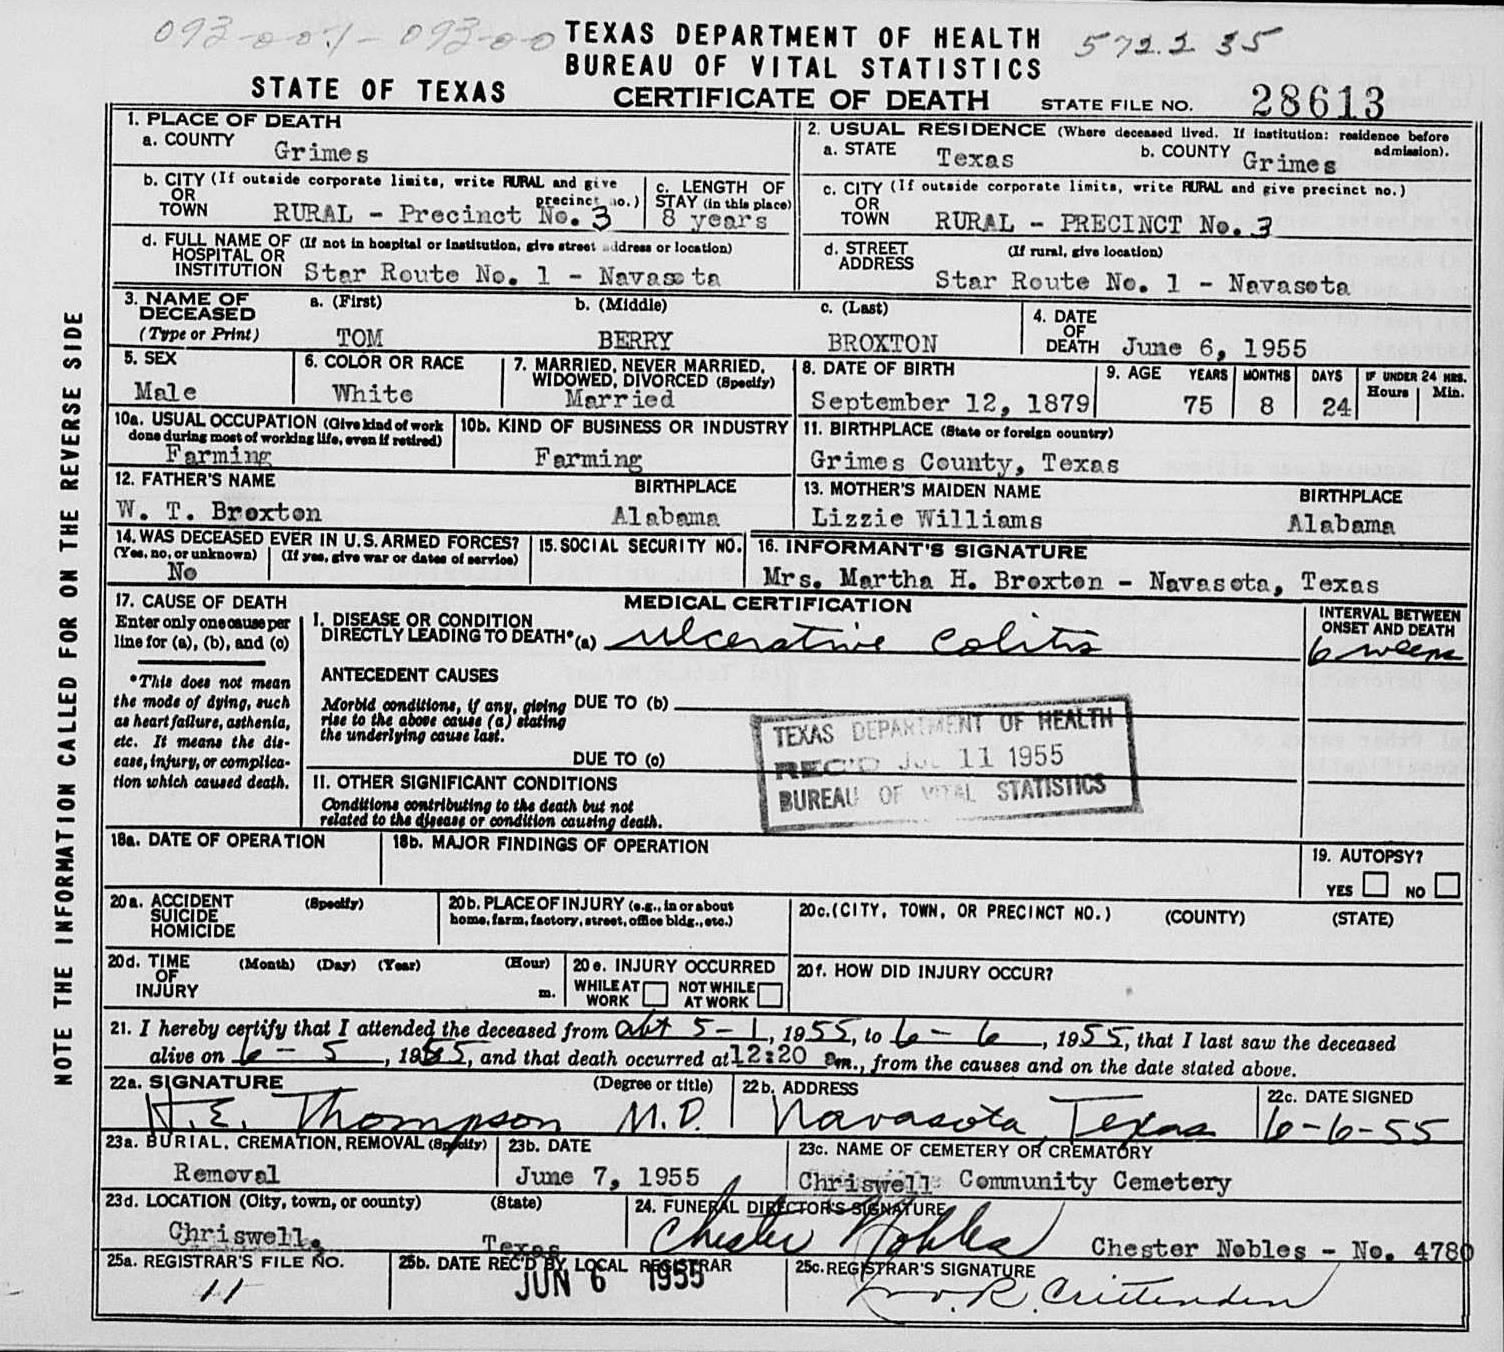 093-001-093-00 TEXAS DEPARTMENT OF HEALTH 572.2 35
BUREAU OF VITAL STATISTICS
STATE OF TEXAS CERTIFICATE OF DEATH STATE FILE NO. 28613
1. PLACE OF DEATH
a. COUNTY Grimes
2. USUAL RESIDENCE (Where deceased lived. If institution: residence before admission).
a. STATE Texas b. COUNTY Grimes
b. CITY (If outside corporate limits, write RURAL and give precinct no.)
OR
TOWN RURAL - Precinct No. 3
c. LENGTH OF
STAY (in this place)
8 years
c. CITY (If outside corporate limits, write RURAL and give precinct no.)
OR
TOWN RURAL - PRECINCT No. 3
d. FULL NAME OF (If not in hospital or institution, give street address or location)
HOSPITAL OR
INSTITUTION Star Route No. 1 - Navasota
d. STREET (If rural, give location)
ADDRESS
Star Route No. 1 - Navasota
3. NAME OF a. (First) b. (Middle) c. (Last)
DECEASED
(Type or Print) TOM BERRY BROXTON
4. DATE
OF
DEATH June 6, 1955
5. SEX
Male
6. COLOR OR RACE
White
7. MARRIED, NEVER MARRIED,
WIDOWED, DIVORCED (Specify)
Married
8. DATE OF BIRTH
September 12, 1879
9. AGE YEARS MONTHS DAYS IF UNDER 24 HRS.
Hours Min.
75 8 24
10a. USUAL OCCUPATION (Give kind of work
done during most of working life, even if retired)
Farming
10b. KIND OF BUSINESS OR INDUSTRY
Farming
11. BIRTHPLACE (State or foreign country)
Grimes County, Texas
12. FATHER'S NAME BIRTHPLACE
W. T. Broxton Alabama
13. MOTHER'S MAIDEN NAME BIRTHPLACE
Lizzie Williams Alabama
14. WAS DECEASED EVER IN U.S. ARMED FORCES?
(Yes, no, or unknown) (If yes, give war or dates of service)
No
15. SOCIAL SECURITY NO.
16. INFORMANT'S SIGNATURE
Mrs. Martha H. Broxton - Navasota, Texas
17. CAUSE OF DEATH
Enter only one cause per
line for (a), (b), and (c)
*This does not mean
the mode of dying, such
as heart failure, asthenia,
etc. It means the dis-
ease, injury, or complica-
tion which caused death.
MEDICAL CERTIFICATION
I. DISEASE OR CONDITION
DIRECTLY LEADING TO DEATH* (a) ulcerative colitis
INTERVAL BETWEEN
ONSET AND DEATH
6 weeks
ANTECEDENT CAUSES
Morbid conditions, if any, giving
rise to the above cause (a) stating
the underlying cause last.
DUE TO (b)
DUE TO (c)
TEXAS DEPARTMENT OF HEALTH
REC'D JUL 11 1955
BUREAU OF VITAL STATISTICS
II. OTHER SIGNIFICANT CONDITIONS
Conditions contributing to the death but not
related to the disease or condition causing death.
18a. DATE OF OPERATION
18b. MAJOR FINDINGS OF OPERATION
19. AUTOPSY?
YES NO
20a. ACCIDENT (Specify)
SUICIDE
HOMICIDE
20b. PLACE OF INJURY (e.g., in or about
home, farm, factory, street, office bldg., etc.)
20c. (CITY, TOWN, OR PRECINCT NO.) (COUNTY) (STATE)
20d. TIME (Month) (Day) (Year) (Hour)
OF
INJURY m.
20e. INJURY OCCURRED
WHILE AT WORK NOT WHILE AT WORK
20f. HOW DID INJURY OCCUR?
21. I hereby certify that I attended the deceased from abt 5-1, 1955, to 6-6, 1955, that I last saw the deceased
alive on 6-5, 1955, and that death occurred at 12:20 am., from the causes and on the date stated above.
22a. SIGNATURE (Degree or title)
H. E. Thompson M.D.
22b. ADDRESS
Navasota, Texas
22c. DATE SIGNED
6-6-55
23a. BURIAL, CREMATION, REMOVAL (Specify)
Removal
23b. DATE
June 7, 1955
23c. NAME OF CEMETERY OR CREMATORY
Chriswell Community Cemetery
23d. LOCATION (City, town, or county) (State)
Chriswell, Texas
24. FUNERAL DIRECTOR'S SIGNATURE
Chester Nobles Chester Nobles - No. 4780
25a. REGISTRAR'S FILE NO.
11
25b. DATE REC'D BY LOCAL REGISTRAR
JUN 6 1955
25c. REGISTRAR'S SIGNATURE
R. Crittenden
NOTE THE INFORMATION CALLED FOR ON THE REVERSE SIDE